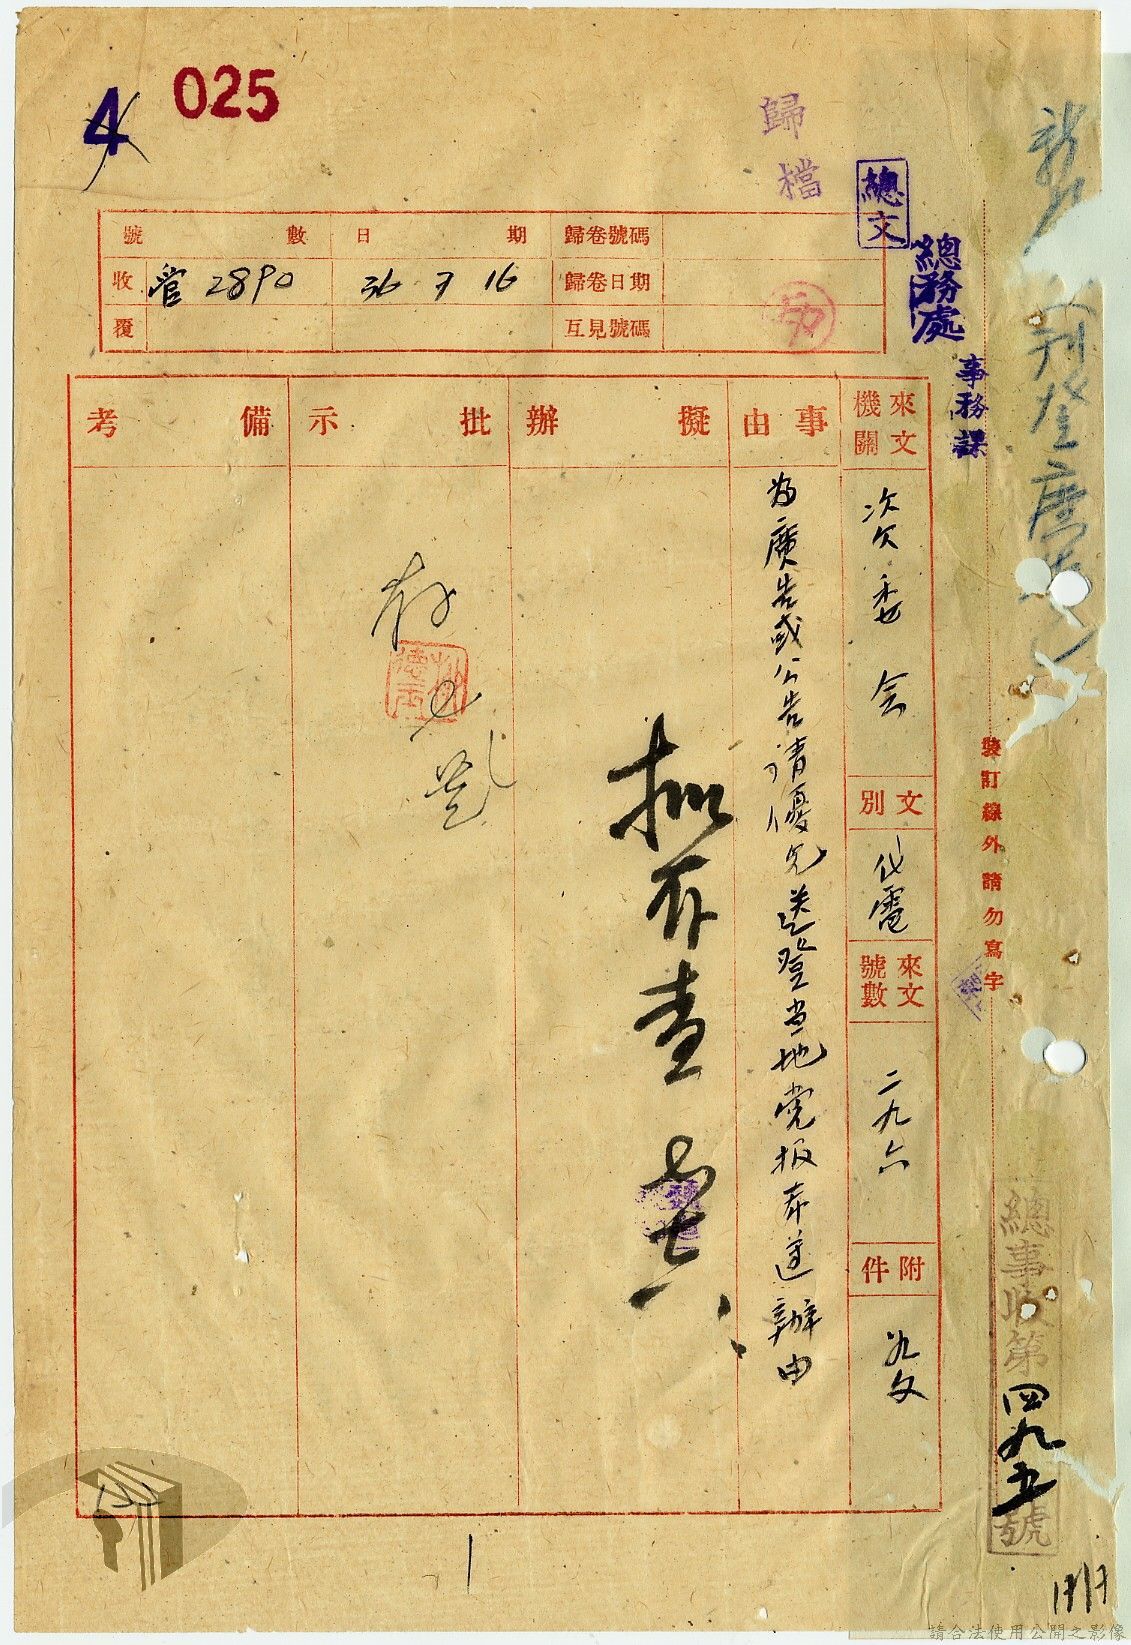 025
4
歸檔
總文
總務處
事務課
號數 日期 歸卷號碼
收 管2890 36 7 16 歸卷日期
覆 互見號碼
來文機關
資委會
文別
代電
來文號數
二九六
附件
事由
為廣告或公告请優先送登当地党报希遵辦由
擬辦
拟存查
批示
存
備考
裝訂線外請勿寫字
總事收第四九五號
請合法使用公開之影像